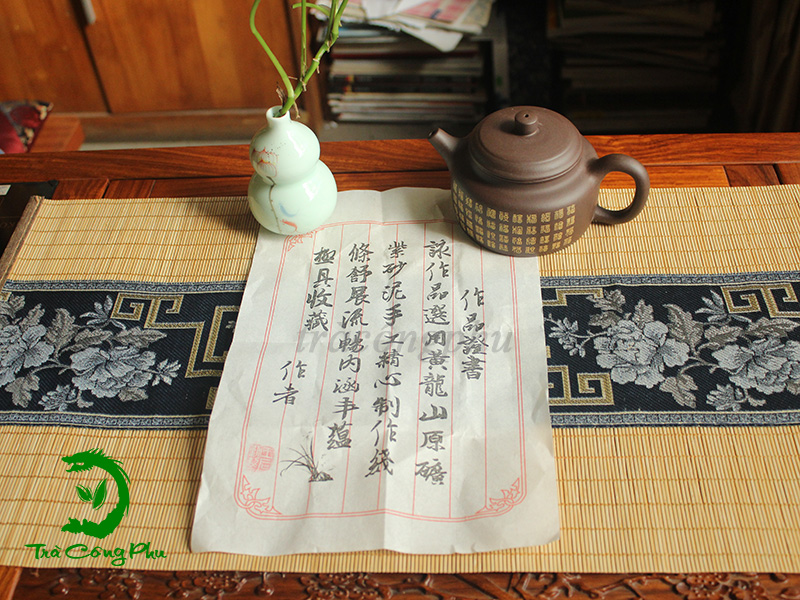 作品證書
該作品選用黃龍山原礦
紫砂泥手工精心制作綫
條舒展流暢内涵丰蘊
極具收藏
作者
tracongphu
Trà Công Phu